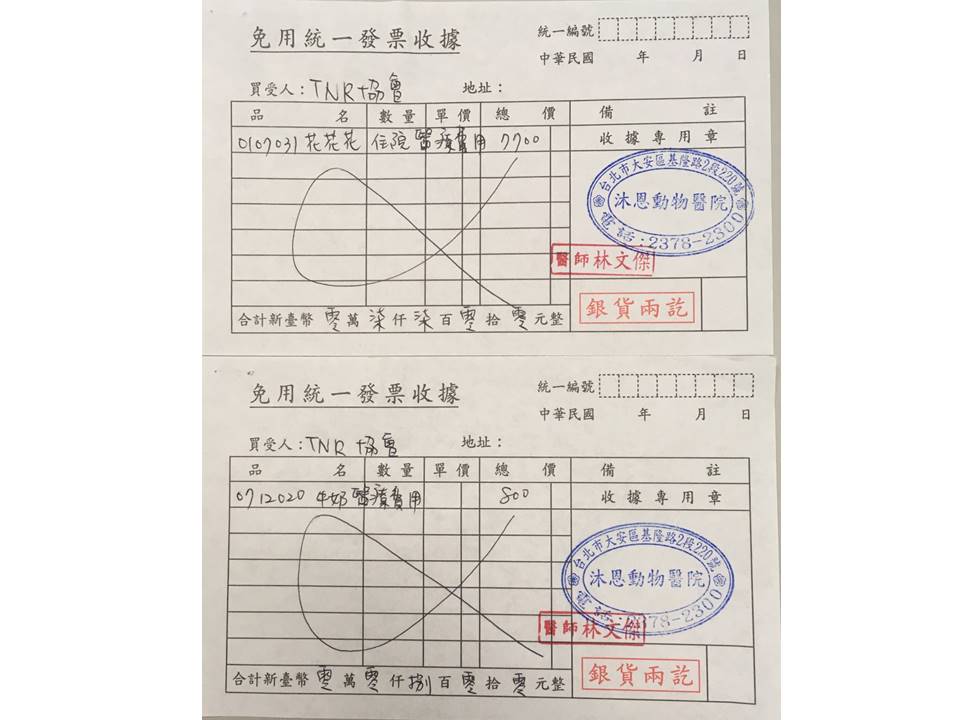 免用統一發票收據
統一編號
中華民國 年 月 日
買受人：TNR協會 地址：
品名 數量 單價 總價 備註
0107031 花花花 住院醫療費用 7700 收據專用章
台北市大安區基隆路2段220號
沐恩動物醫院
電話：2378-2300
醫師林文傑
銀貨兩訖
合計新臺幣 零萬柒仟柒百零拾零元整
免用統一發票收據
統一編號
中華民國 年 月 日
買受人：TNR協會 地址：
品名 數量 單價 總價 備註
0712020 牛奶醫療費用 800 收據專用章
台北市大安區基隆路2段220號
沐恩動物醫院
電話：2378-2300
醫師林文傑
銀貨兩訖
合計新臺幣 零萬零仟捌百零拾零元整